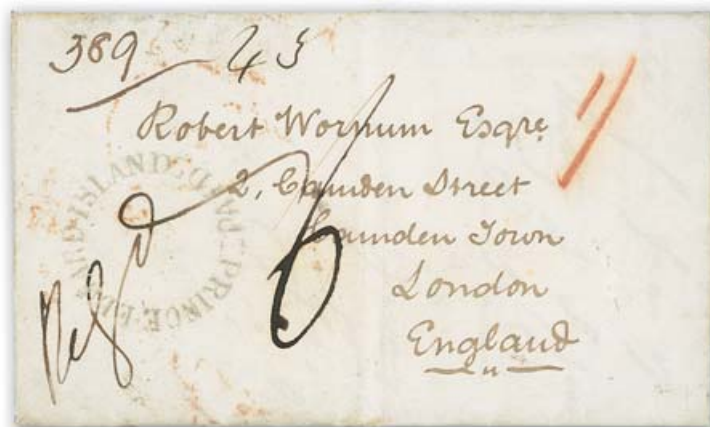 389 43
Robert Wornum Esqre
2, Camden Street
Camden Town
London
England
Regd
6
PRINCE EDWARD ISLAND